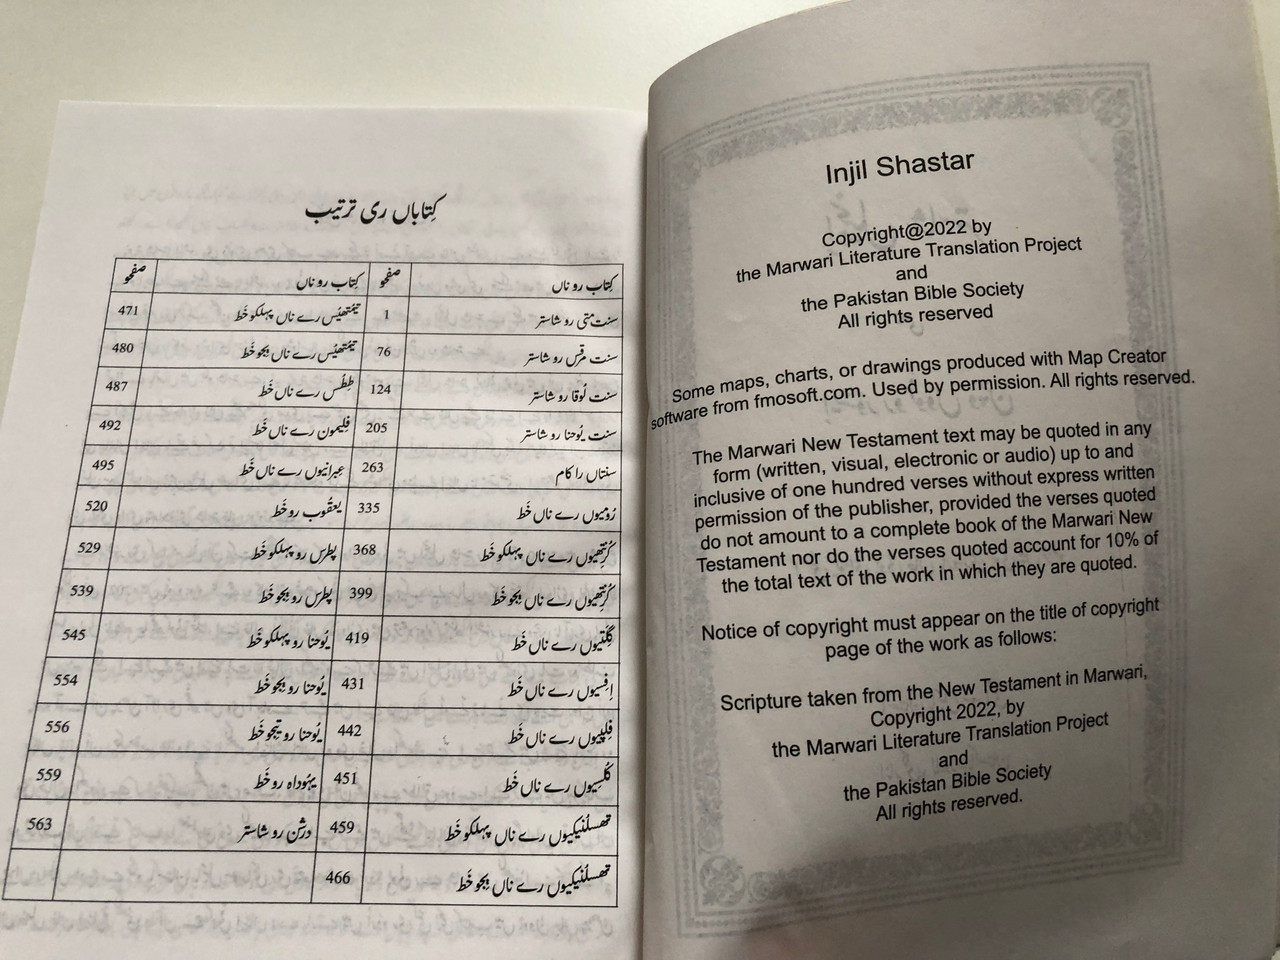 کِتاباں ری ترتیب
کِتاب رو ناں صفحو کِتاب رو ناں صفحو
سنت متی رو شاستر 1 تیمُتھیُس رے ناں پہلکو خَط 471
سنت مرقس رو شاستر 76 تیمُتھیُس رے ناں بیجو خَط 480
سنت لُوقا رو شاستر 124 طِطُس رے ناں خَط 487
سنت یُوحنا رو شاستر 205 فِلیمون رے ناں خَط 492
سنتاں را کام 263 عِبرانیوں رے ناں خَط 495
رُومیوں رے ناں خَط 335 یعقُوب رو خَط 520
کُرِنتھیوں رے ناں پہلکو خَط 368 پطرس رو پہلکو خَط 529
کُرِنتھیوں رے ناں بیجو خَط 399 پطرس رو بیجو خَط 539
گلتیوں رے ناں خَط 419 یُوحنا رو پہلکو خَط 545
اِفسیوں رے ناں خَط 431 یُوحنا رو بیجو خَط 554
فِلپیوں رے ناں خَط 442 یُوحنا رو تیجو خَط 556
کُلسیوں رے ناں خَط 451 یہُوداہ رو خَط 559
تھسلُنیکیوں رے ناں پہلکو خَط 459 درشن رو شاستر 563
تھسلُنیکیوں رے ناں بیجو خَط 466
Injil Shastar
Copyright@2022 by
the Marwari Literature Translation Project
and
the Pakistan Bible Society
All rights reserved
Some maps, charts, or drawings produced with Map Creator
software from fmosoft.com. Used by permission. All rights reserved.
The Marwari New Testament text may be quoted in any
form (written, visual, electronic or audio) up to and
inclusive of one hundred verses without express written
permission of the publisher, provided the verses quoted
do not amount to a complete book of the Marwari New
Testament nor do the verses quoted account for 10% of
the total text of the work in which they are quoted.
Notice of copyright must appear on the title of copyright
page of the work as follows:
Scripture taken from the New Testament in Marwari,
Copyright 2022, by
the Marwari Literature Translation Project
and
the Pakistan Bible Society
All rights reserved.